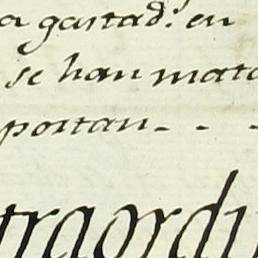 a gastad.ˢ en
se han mata
portan - - -
traordi